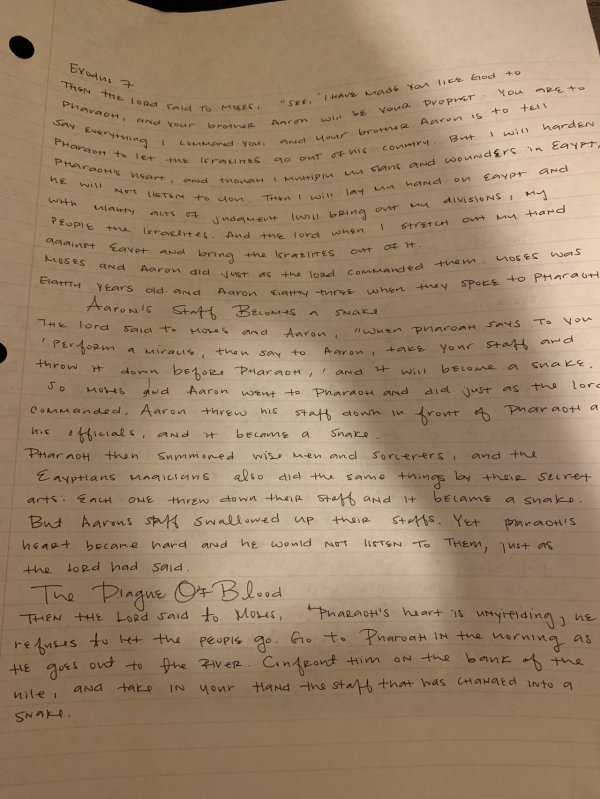 Exodus 7
THEN THE LORD SAID TO MOSES, "SEE, I HAVE MADE YOU LIKE GOD TO
PHARAOH, AND YOUR BROTHER AARON WILL BE YOUR PROPHET. YOU ARE TO
SAY EVERYTHING I COMMAND YOU. AND YOUR BROTHER AARON IS TO TELL
PHARAOH TO LET THE ISRAELITES GO OUT OF HIS COUNTRY. BUT I WILL HARDEN
PHARAOH'S HEART, AND THOUGH I MULTIPLY MY SIGNS AND WOUNDERS IN EGYPT,
HE WILL NOT LISTEN TO YOU. THEN I WILL LAY MY HAND ON EGYPT AND
WITH MIGHTY ACTS OF JUDGMENT I WILL BRING OUT MY DIVISIONS, MY
PEOPLE THE ISRAELITES. AND THE LORD WHEN I STRETCH OUT MY HAND
AGAINST EGYPT AND BRING THE ISRAELITES OUT OF IT.
MOSES AND AARON DID JUST AS THE LORD COMMANDED THEM. MOSES WAS
EIGHTY YEARS OLD AND AARON EIGHTY THREE WHEN THEY SPOKE TO PHARAOH
AARON'S STAFF BECOMES A SNAKE
THE LORD SAID TO MOSES AND AARON, "WHEN PHAROAH SAYS TO YOU
'PERFORM A MIRACLE, THEN SAY TO AARON, TAKE YOUR STAFF AND
THROW IT DOWN BEFORE PHARAOH,' AND IT WILL BECOME A SNAKE.
SO MOSES AND AARON WENT TO PHARAOH AND DID JUST AS THE LORD
COMMANDED. AARON THREW HIS STAFF DOWN IN FRONT OF PHARAOH A
HIS OFFICIALS, AND IT BECAME A SNAKE.
PHARAOH THEN SUMMONED WISE MEN AND SORCERERS, AND THE
EGYPTIANS MAGICIANS ALSO DID THE SAME THINGS BY THEIR SECRET
ARTS: EACH ONE THREW DOWN THEIR STAFF AND IT BECAME A SNAKE.
BUT AARONS STAFF SWALLOWED UP THEIR STAFFS. YET PHARAOH'S
HEART BECAME HARD AND HE WOULD NOT LISTEN TO THEM, JUST AS
THE LORD HAD SAID.
The Plague Of Blood
THEN THE LORD SAID TO MOSES, "PHARAOH'S HEART IS UNYIELDING, HE
REFUSES TO LET THE PEOPLE GO. GO TO PHAROAH IN THE MORNING AS
HE GOES OUT TO THE RIVER. CINFRONT HIM ON THE BANK OF THE
NILE, AND TAKE IN YOUR HAND THE STAFF THAT WAS CHANGED INTO A
SNAKE.